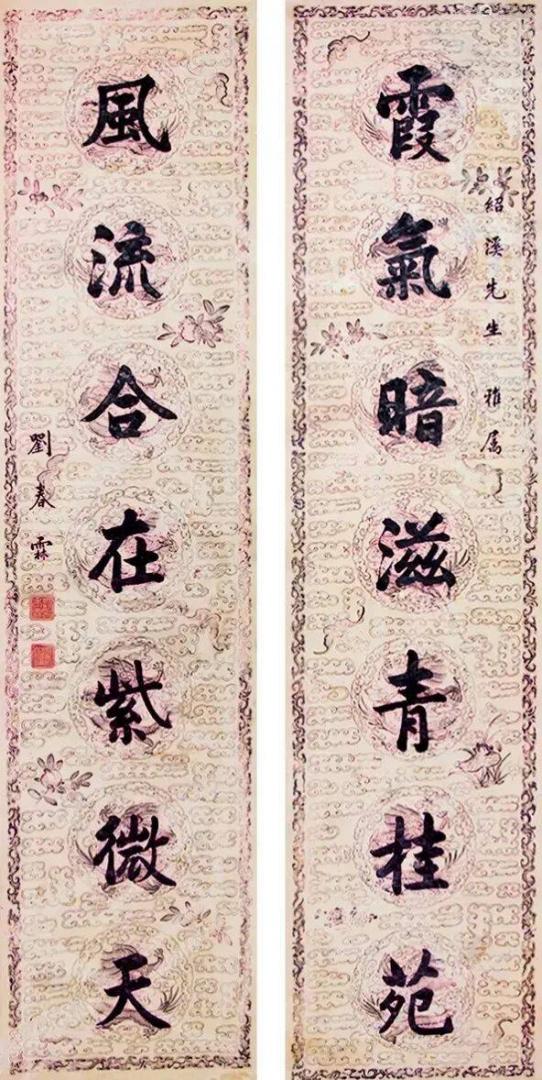 霞氣暗滋青桂苑
紹溪先生雅属
風流合在紫微天
劉春霖